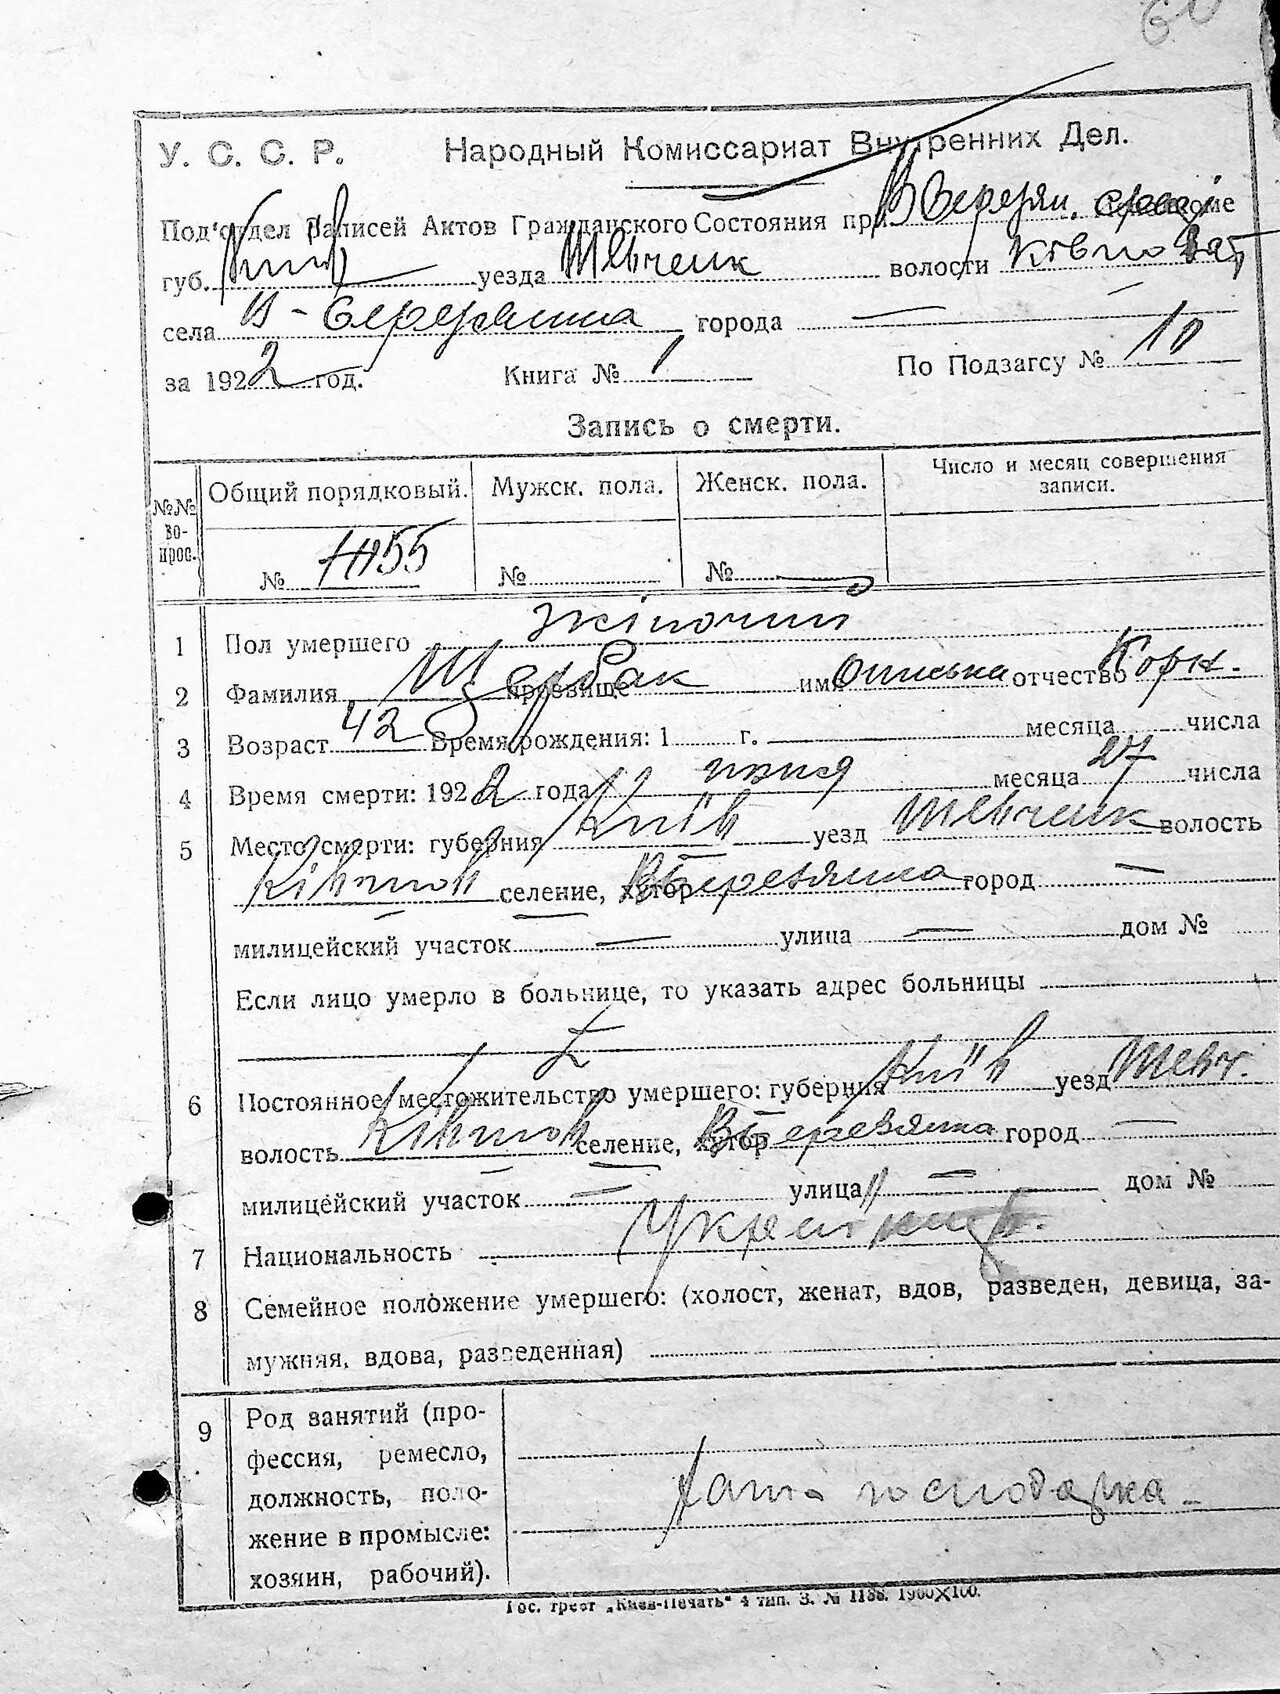 60
У. С. С. Р. Народный Комиссариат Внутренних Дел.
Под'отдел Записей Актов Гражданского Состояния при В Березян.
губ. Київ уезда Шевченк волости Ківшов
села В-Березянка города —
за 1922 год. Книга № 1 По Подзагсу № 10
Запись о смерти.
№№ вопрос. Общий порядковый. Мужск. пола. Женск. пола. Число и месяц совершения записи.
№ 55 № №
1 Пол умершего жіночий
2 Фамилия Щербак прозвище имя Ониська отчество Корн.
3 Возраст 42 Время рождения: 1 г. месяца числа
4 Время смерти: 1922 года июня месяца 27 числа
5 Место смерти: губерния Київ уезд Шевченк волость
Ківшов селение, хутор ВБерезянка город —
милицейский участок — улица — дом №
Если лицо умерло в больнице, то указать адрес больницы
6 Постоянное местожительство умершего: губерния Київ уезд Шевч.
волость Ківшов селение, хутор ВБерезянка город —
милицейский участок — улица — дом №
7 Национальность
8 Семейное положение умершего: (холост, женат, вдов, разведен, девица, за-
мужняя, вдова, разведенная)
9 Род занятий (про-
фессия, ремесло,
должность, поло-
жение в промысле:
хозяин, рабочий).
хатня господарка
Гос. трест „Киев-Печать" 4 тип. З. № 1188. 1900X100.